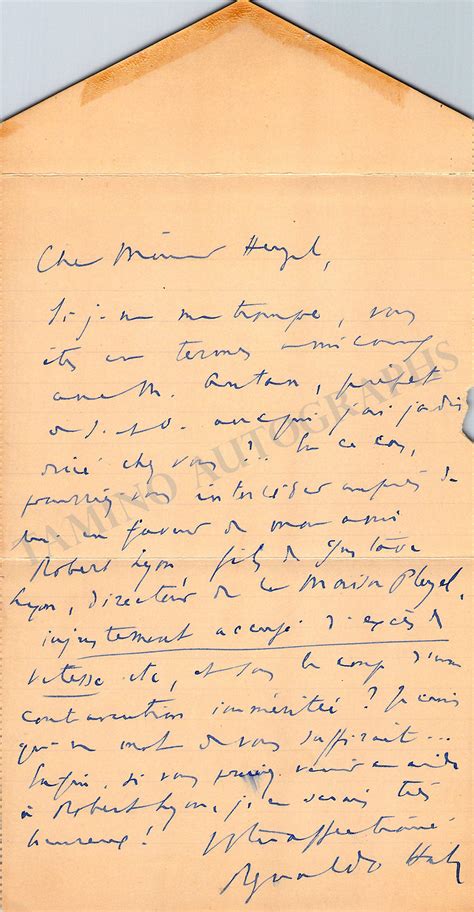 Cher Monsieur Heugel,
Si je ne me trompe, vous
êtes en termes amicaux
avec M. Autan, préfet
de S. &. O. avec qui j'ai jadis
dîné chez vous ?? En ce cas,
pourriez-vous intercéder auprès de
lui en faveur de mon ami
Robert Lyon, fils de Gustave
Lyon, directeur de la Maison Pleyel,
injustement accusé d'excès de
vitesse etc, et sous le coup d'une
contravention imméritée ? Je crois
qu'un mot de vous suffirait...
Enfin, si vous pouviez venir en aide
à Robert Lyon, j'en serais très
heureux !
Votre affectionné
Reynaldo Hahn
TAMINO AUTOGRAPHS